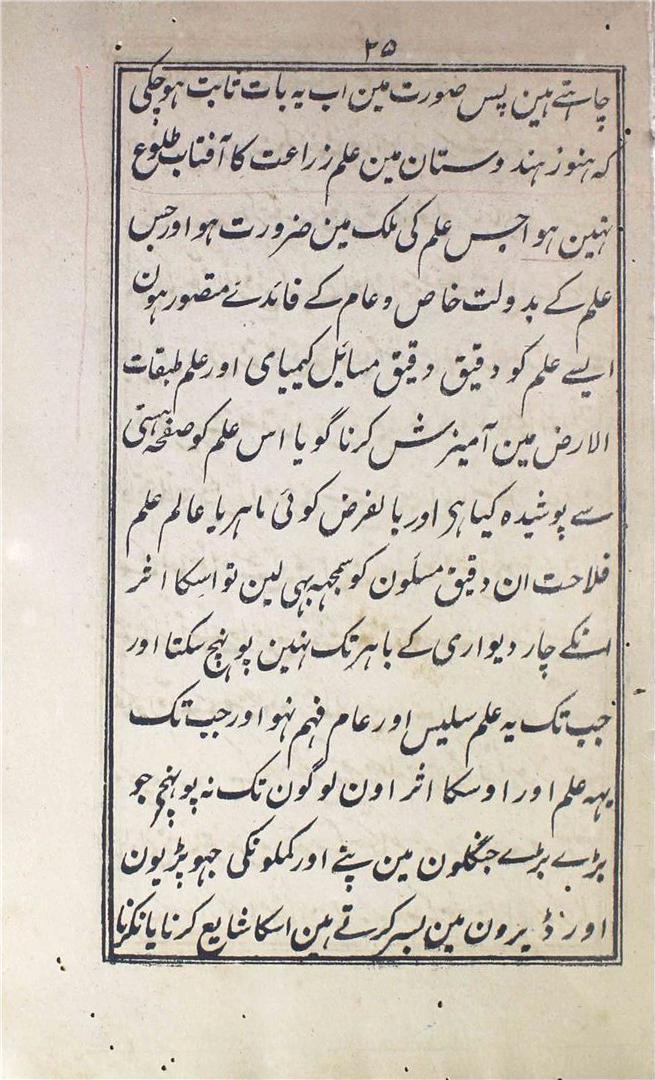 ۲۵
چاہتے ہین پس صورت مین اب یہ بات ثابت ہوچکی
کہ ہنوز ہندوستان مین علم زراعت کا آفتاب طلوع
نہین ہوا جس علم کی ملک مین ضرورت ہو اور جس
علم کے بدولت خاص و عام کے فائدے متصور ہون
ایسے علم کو دقیق دقیق مسائل کیمیای اور علم طبقات
الارض مین آمیزش کرنا گویا اس علم کو صفحہ ہستی
سے پوشیدہ کیا ہی اور بالفرض کوئی ماہر یا عالم علم
فلاحت ان دقیق مسٔلون کو سمجہہ بہی لین تو اسکا اثر
انکے چار دیواری کے باہر تک نہین پونہچ سکتا اور
جب تک یہ علم سلیس اور عام فہم نہو اور جب تک
یہہ علم اور اوسکا اثر اون لوگون تک نہ پونہچے جو
بڑے بڑے جنگلون مین پتے اور کملونکی جہوپڑیون
اور ڈیرون مین بسر کرتے ہین اسکا شایع کرنا یا نکرنا